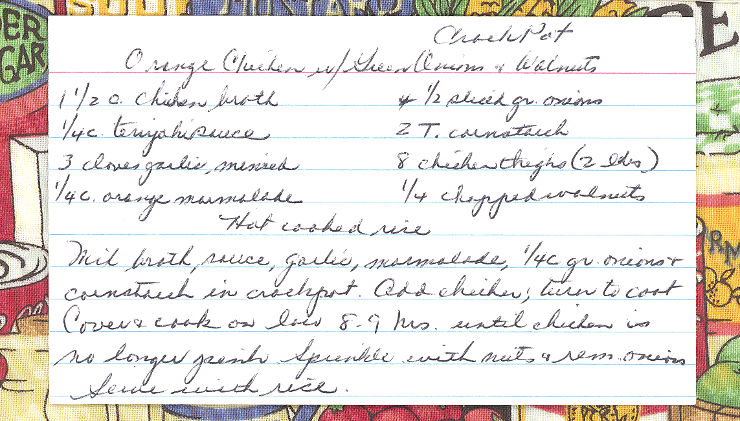 CrockPot
Orange Chicken w/ Green Onions & Walnuts
1 1/2 c. chicken broth
4 1/2 sliced gr. onions
1/4 c. teriyaki sauce
2 T. cornstarch
3 cloves garlic, minced
8 chicken thighs (2 lbs.)
1/4 c. orange marmalade
1/4 chopped walnuts
Hot cooked rice
Mix broth, sauce, garlic, marmalade, 1/4c gr. onions +
cornstarch in crockpot. Add chicken; turn to coat
Cover & cook on low 8-9 hrs. until chicken is
no longer pink Sprinkle with nuts & rem. onions
Serve with rice.
ER
GAR
E